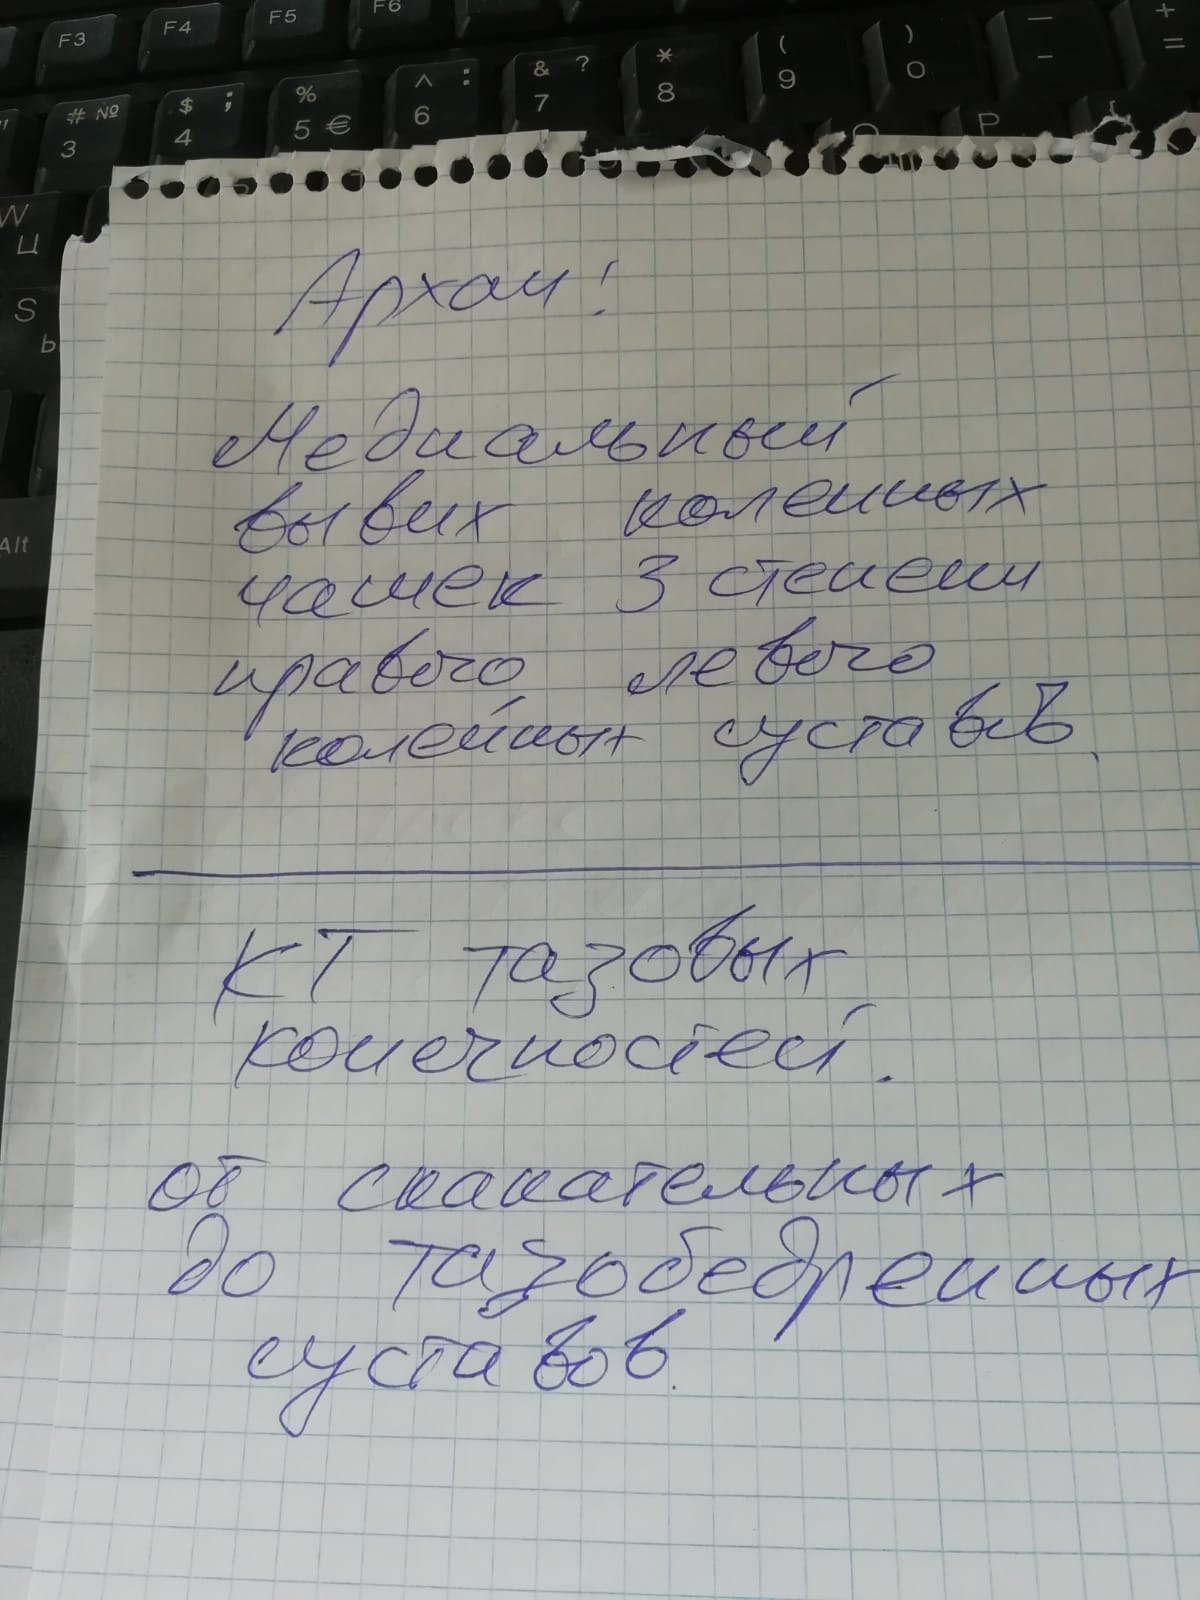 F3 F4 F5 F6
# № 3 $ ; 4 % 5 € ^ : 6 & ? 7 * 8 ( 9 ) 0 — - + =
W Ц P
S Ы
Alt
Архан!
Медиальный
вывих коленных
чашек 3 степени
правого левого
коленных суставов.
КТ тазовых
конечностей.
от скакательных
до тазобедренных
суставов.